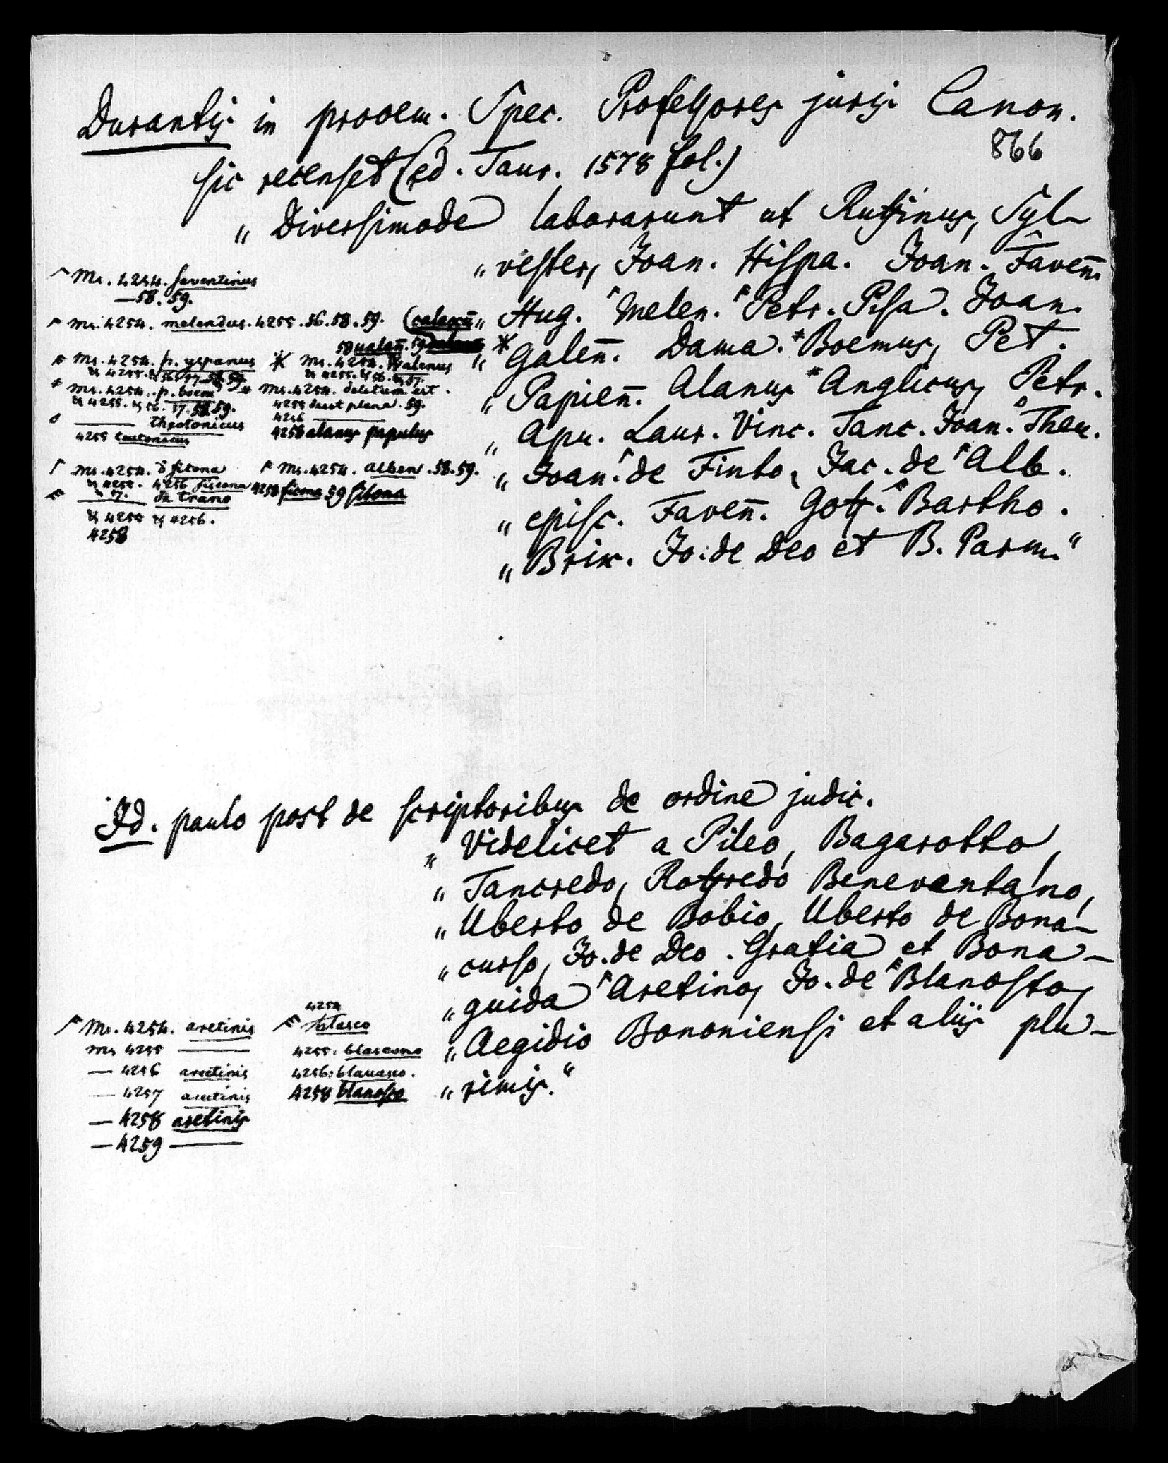 Durantis in prooem. Spec. Professores juris Canon.
866
sic recenset (ed. Taur. 1578 fol.)
„ Diversimode laborarunt ut Ruffinus, Syl-
„ vester, Joan. Hispa. Joan. Faven̄.
„ Hug. Melen. Petr. Pisa. Joan.
„ Galen̄. Dama. Boemus, Pet.
„ Papien̄. Alanus Anglicus, Petr.
„ Apu. Laur. Vinc. Tanc. Joan. Theu.
„ Joan. de Finto, Jac. de Alb.
„ episc. Faven̄. Goff. Bartho.
„ Brix. Jo: de Deo et B. Parm."
Ms. 4254. faventinus
—58. 59.
Ms. 4254. melendus. 4255. 56. 58. 59.
Ms. 4254. p. yspanus
Ms. 4254. p. boem
theotonicus
4255 teutonicus
Ms. 4254.
4255. 59.
4256
4258 alanus papulus
Ms. 4254. d fitona
4256 siscona 4258 59 fitona
da trano
& 4255 & 4256.
4258
Ms. 4254. alben. 58. 59.
Id. paulo post de scriptoribus de ordine judic.
„ Videlicet a Pileo, Bagarotto,
„ Tancredo, Roffredo Beneventano,
„ Uberto de Bobio, Uberto de Bona-
„ curso, Jo. de Deo. Gratia et Bona-
„ guida Aretino, Jo. de Blanosto,
„ Aegidio Bononiensi et aliis plu-
„ rimis."
Ms. 4254. aretinis
Ms 4255 ——
— 4256 aretinis
— 4257 aretinis
— 4258 aretinis
— 4259 ——
4254
blasco
4255: blascono
4256: blanasco.
4258 blanosco